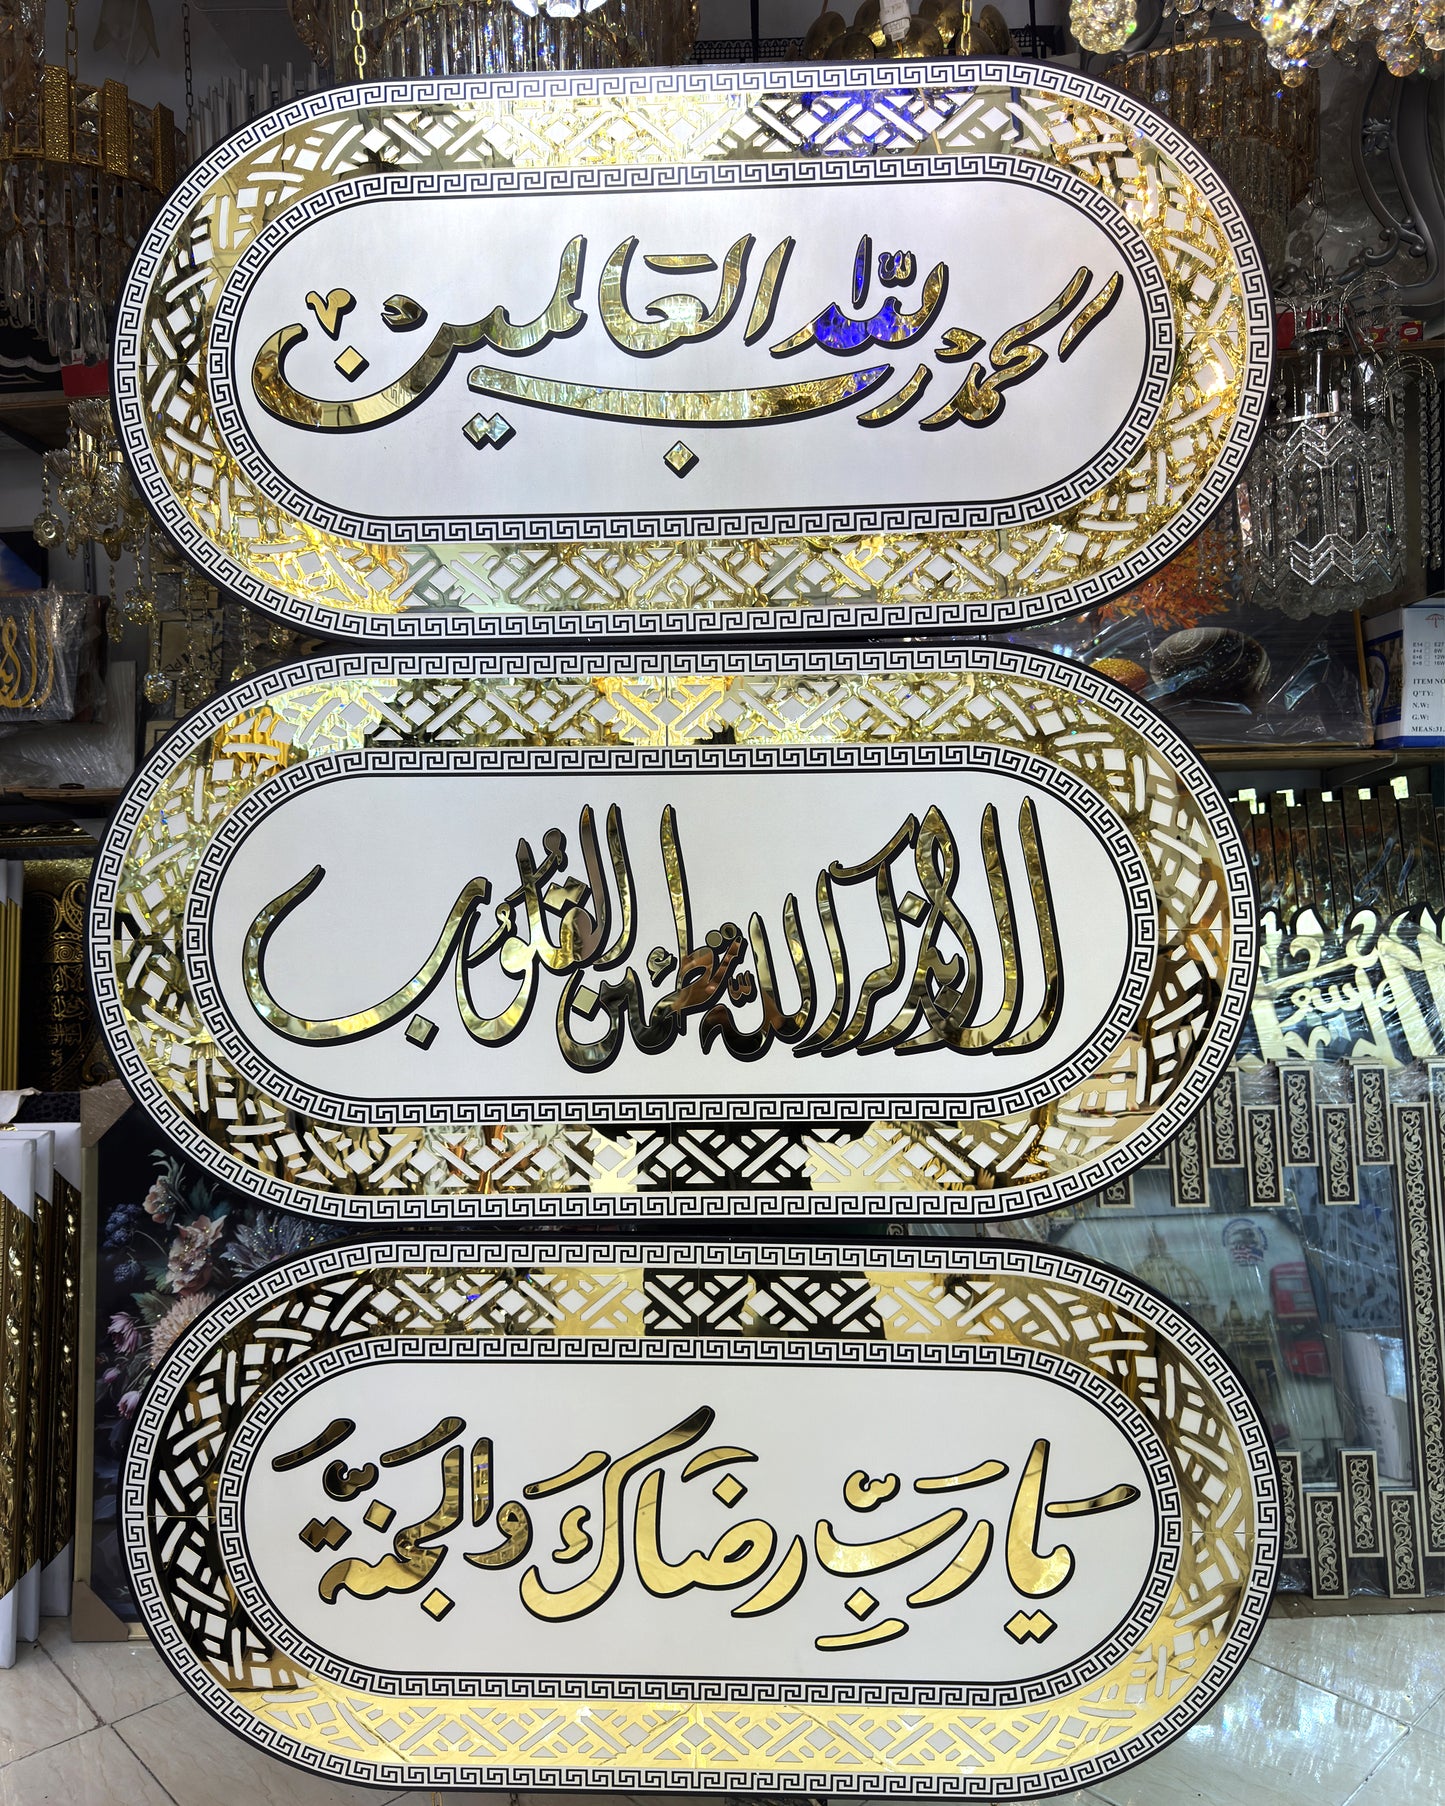 الحمد لله رب العالمين
الا بذكر الله تطمئن القلوب
يَا رَبِّ رضَاكَ والجَنَّةَ
E14
E27
ITEM NO
Q'TY:
N.W:
G.W:
MEAS:31.